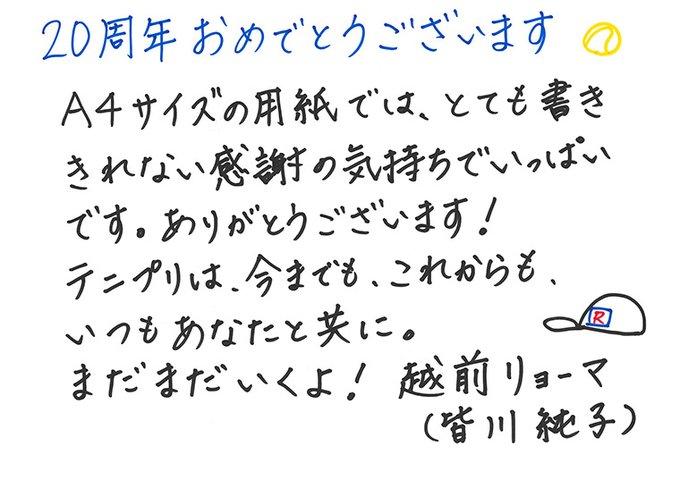 20周年おめでとうございます
A4サイズの用紙では、とても書き
きれない感謝の気持ちでいっぱい
です。ありがとうございます!
テニプリは、今までも、これからも、
いつもあなたと共に。
R
まだまだいくよ! 越前リョーマ
(皆川純子)